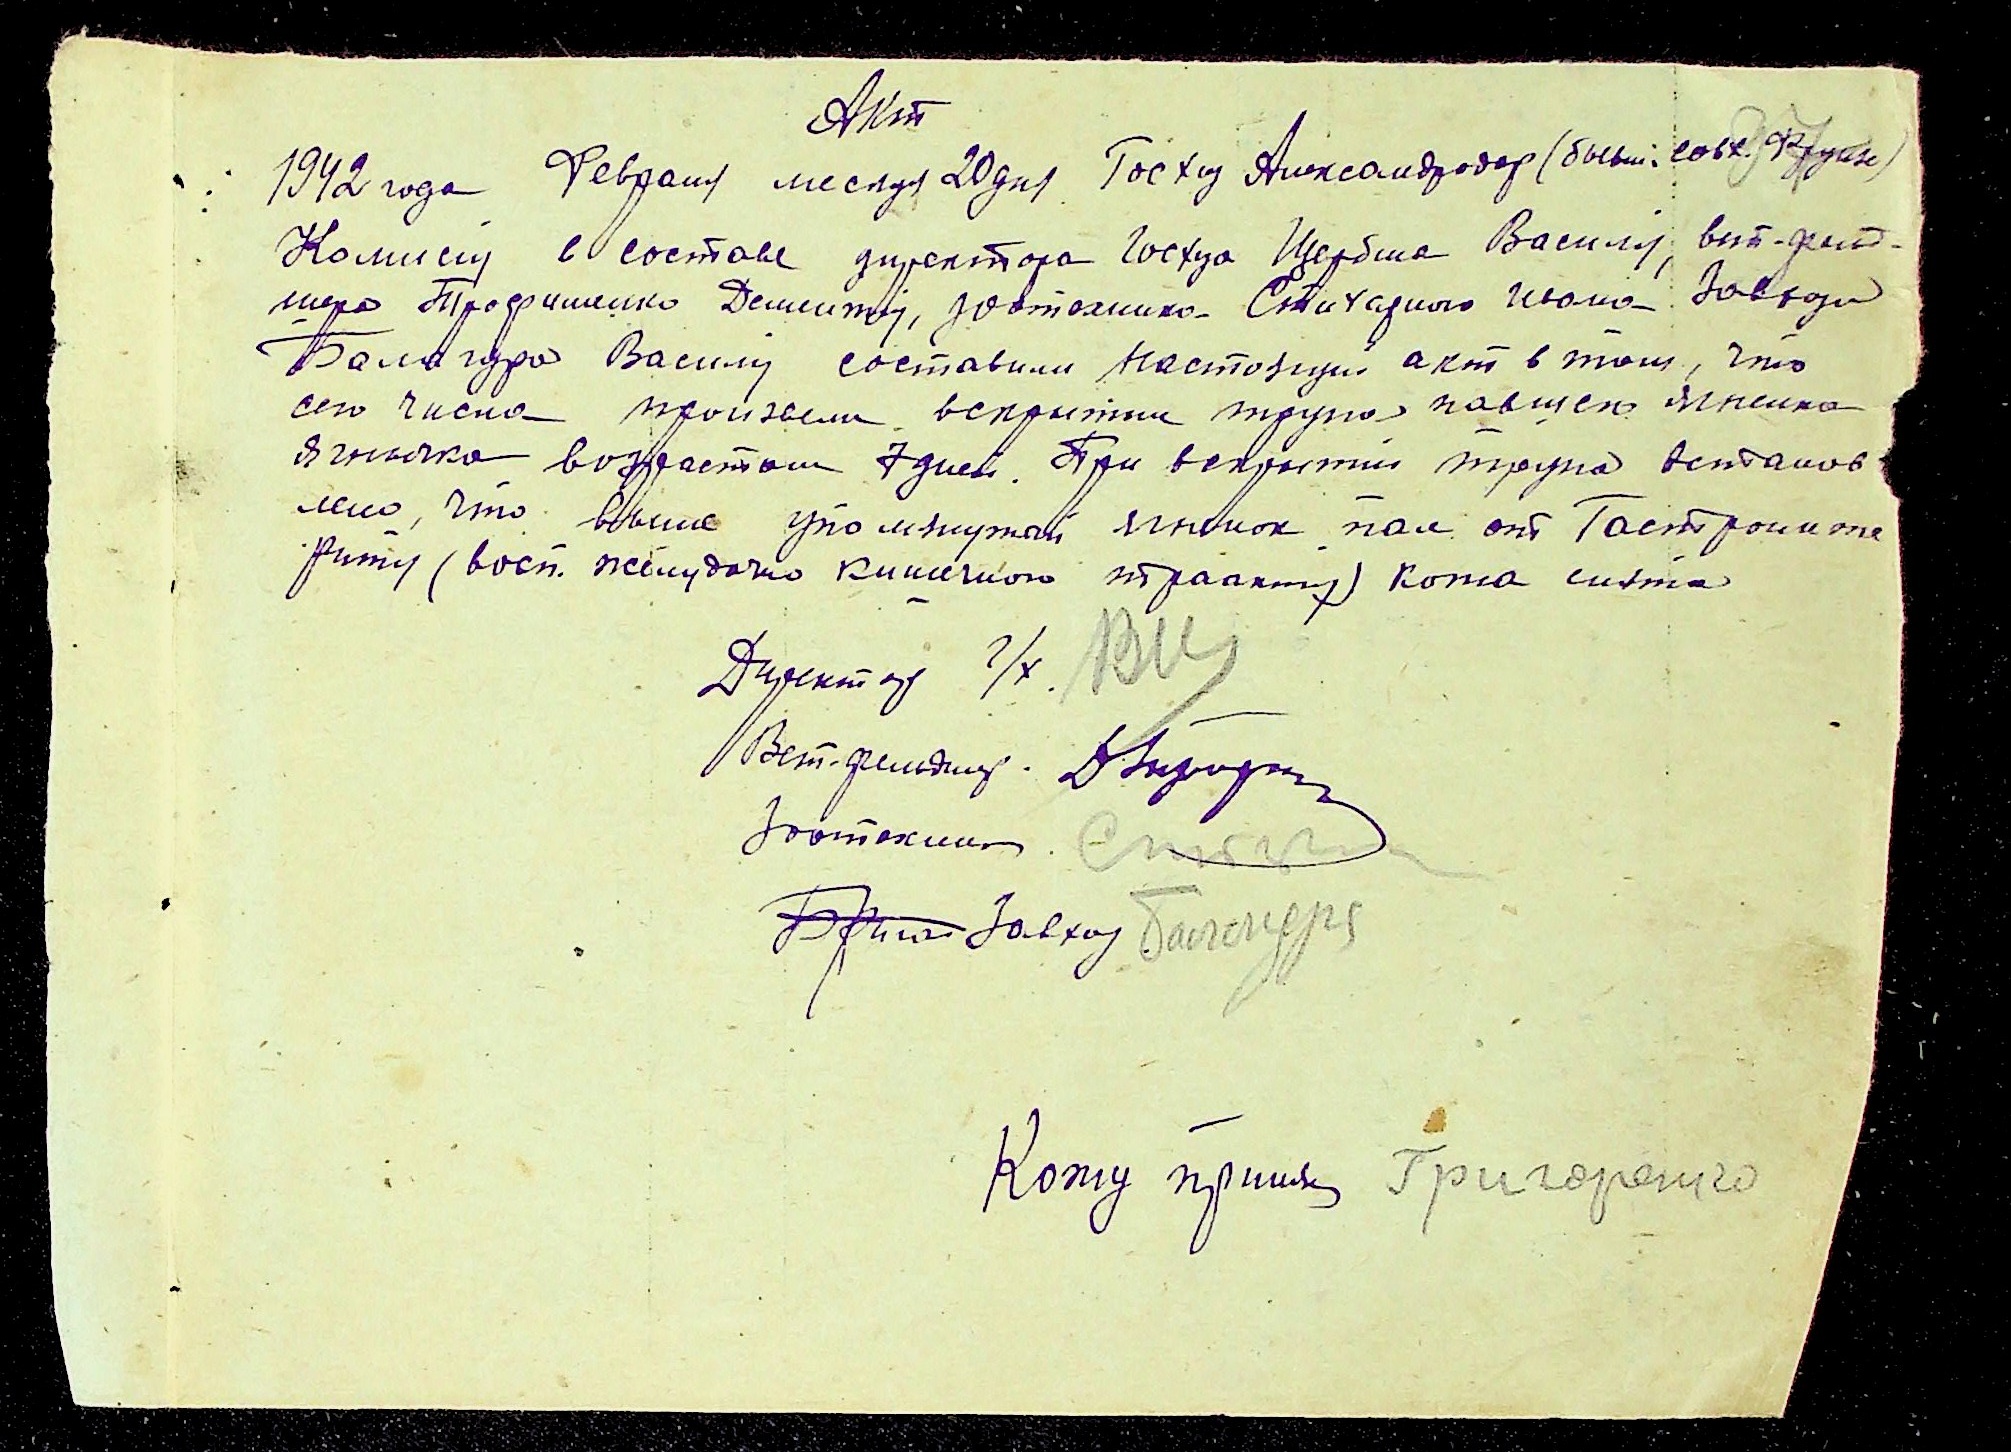 Акт
1942 года Февраля месяця 20 дня Госхоз Александродар (бывш. совх. Фрунзе)
Комисия в составе директора Госхоза Щербина Василия, вет-фельд-
шера Трофименко Дементия, зоотехника Стичарного Ивана Завхоза
Балагура Василия составили настоящий акт в том, что
сего числа произвели вскрытие трупа павшего ягненка
возрастом 7 дней. При вскрытии трупа встанов
лено, что выше упомянутый ягненок пал от Гастроинте
риту (восп. желудочно кишечного траакту) кожа снята
Директор г/х.
Вет-фельдшер.
Зоотехник
Завхоз Балагура
Кожу принял Григоренко